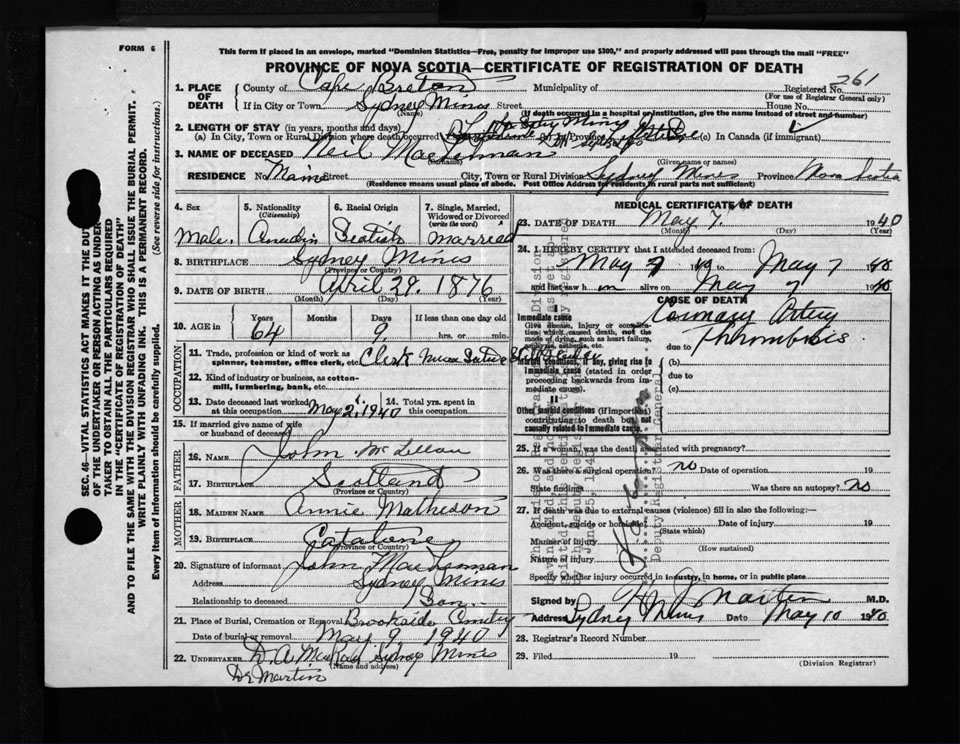 FORM 6
This form if placed in an envelope, marked "Dominion Statistics—Free, penalty for improper use $300," and properly addressed will pass through the mail "FREE"
PROVINCE OF NOVA SCOTIA—CERTIFICATE OF REGISTRATION OF DEATH
261
1. PLACE OF DEATH
County of Cape Breton Municipality of Registered No.
(For use of Registrar General only)
If in City or Town Sydney Mines Street House No.
(Name) (If death occurred in a hospital or institution, give the name instead of street and number)
2. LENGTH OF STAY (in years, months and days)
(a) In City, Town or Rural Division where death occurred (b) In Province (c) In Canada (if immigrant)
3. NAME OF DECEASED Neil MacLennan
(Surname) (Given name or names)
RESIDENCE No. Main Street City, Town or Rural Division Sydney Mines Province Nova Scotia
(Residence means usual place of abode. Post Office Address for residents in rural parts not sufficient)
4. Sex
Male.
5. Nationality
(Citizenship)
6. Racial Origin
Scotish
7. Single, Married, Widowed or Divorced
(write the word)
Married
8. BIRTHPLACE Sydney Mines
(Province or Country)
9. DATE OF BIRTH April 29. 1876
(Month) (Day) (Year)
10. AGE in
Years Months Days If less than one day old
64 9 hrs. or min.
OCCUPATION
11. Trade, profession or kind of work as spinner, teamster, office clerk, etc. Clerk
12. Kind of industry or business, as cotton-mill, lumbering, bank, etc.
13. Date deceased last worked at this occupation May 2, 1940
14. Total yrs. spent in this occupation
15. If married give name of wife or husband of deceased
FATHER
16. NAME John McLellan
17. BIRTHPLACE Scotland
(Province or Country)
MOTHER
18. MAIDEN NAME Annie Matheson
19. BIRTHPLACE Catalone
(Province or Country)
20. Signature of informant John MacLennan
Address Sydney Mines
Relationship to deceased Son
21. Place of Burial, Cremation or Removal Brookside
Date of burial or removal May 9 1940
22. UNDERTAKER D. A. McRae Sydney Mines
(Name and address)
Dr Martin
MEDICAL CERTIFICATE OF DEATH
23. DATE OF DEATH May 7. 1940
(Month) (Day) (Year)
24. I HEREBY CERTIFY that I attended deceased from:
May 7 19 to May 7 1940
and last saw h m alive on May 7 1940
CAUSE OF DEATH
Immediate cause
Give disease, injury or complication which caused death, not the mode of dying, such as heart failure, asphyxia, asthenia, etc.
Coronary Artery
due to Thrombosis
Morbid conditions, if any, giving rise to immediate cause (stated in order proceeding backwards from immediate cause).
(b)
due to
(c)
Other morbid conditions (if important) contributing to death but not causally related to immediate cause.
25. If a woman, was the death associated with pregnancy?
26. Was there a surgical operation? no Date of operation 19
State findings Was there an autopsy? no
27. If death was due to external causes (violence) fill in also the following:—
Accident, suicide or homicide Date of injury 19
(State which)
Manner of injury
(How sustained)
Nature of injury
Specify whether injury occurred in industry, in home, or in public place
Signed by Martin M.D.
Address Sydney Mines Date May 10 1940
28. Registrar's Record Number
29. Filed 19
(Division Registrar)
SEC. 46—VITAL STATISTICS ACT MAKES IT THE DUTY
OF THE UNDERTAKER OR PERSON ACTING AS UNDER-
TAKER TO OBTAIN ALL THE PARTICULARS REQUIRED
IN THE "CERTIFICATE OF REGISTRATION OF DEATH"
AND TO FILE THE SAME WITH THE DIVISION REGISTRAR WHO SHALL ISSUE THE BURIAL PERMIT.
WRITE PLAINLY WITH UNFADING INK. THIS IS A PERMANENT RECORD.
Every item of Information should be carefully supplied. (See reverse side for instructions.)
Deputy Registrar General